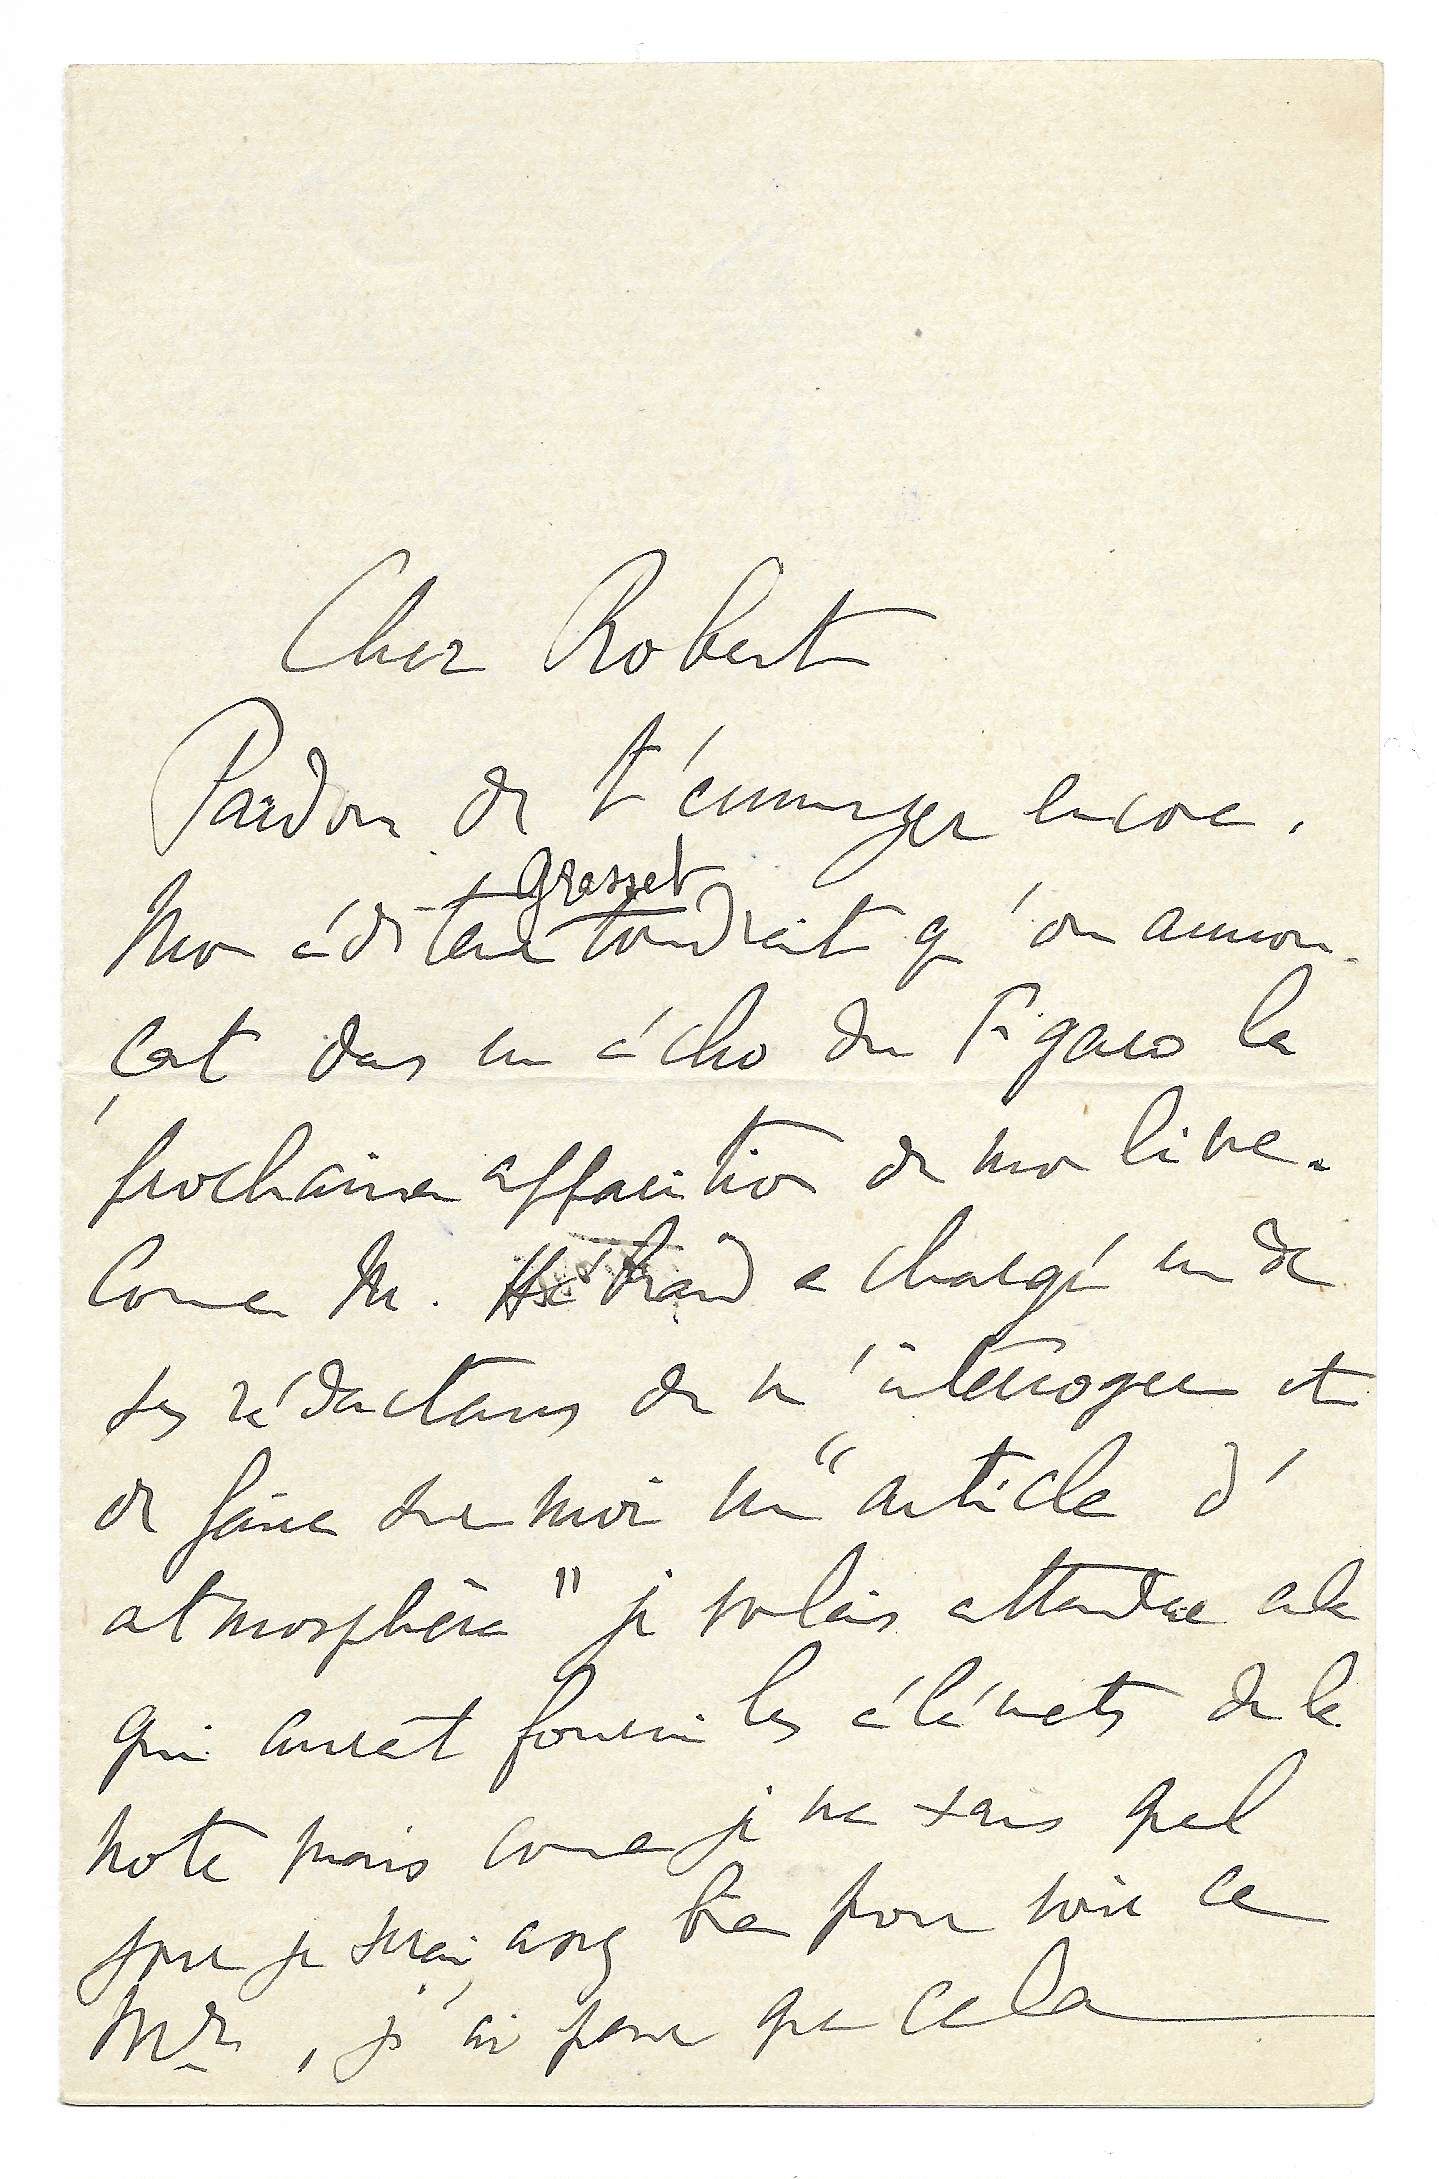 Cher Robert
Pardon de t'ennuyer encore.
Mon éditeur Grasset voudrait qu'on annon-
çât dans un écho du Figaro la
prochaine apparition de mon livre.
Comme M. Hébrard a chargé un de
ses rédacteurs de m'interroger et
de faire sur moi un "article d'
atmosphère" je voulais attendre cela
qui aurait fourni les éléments de la
note mais comme je ne sais quel
jour je serai assez bien pour voir ce
Mr, j'ai peur que cela